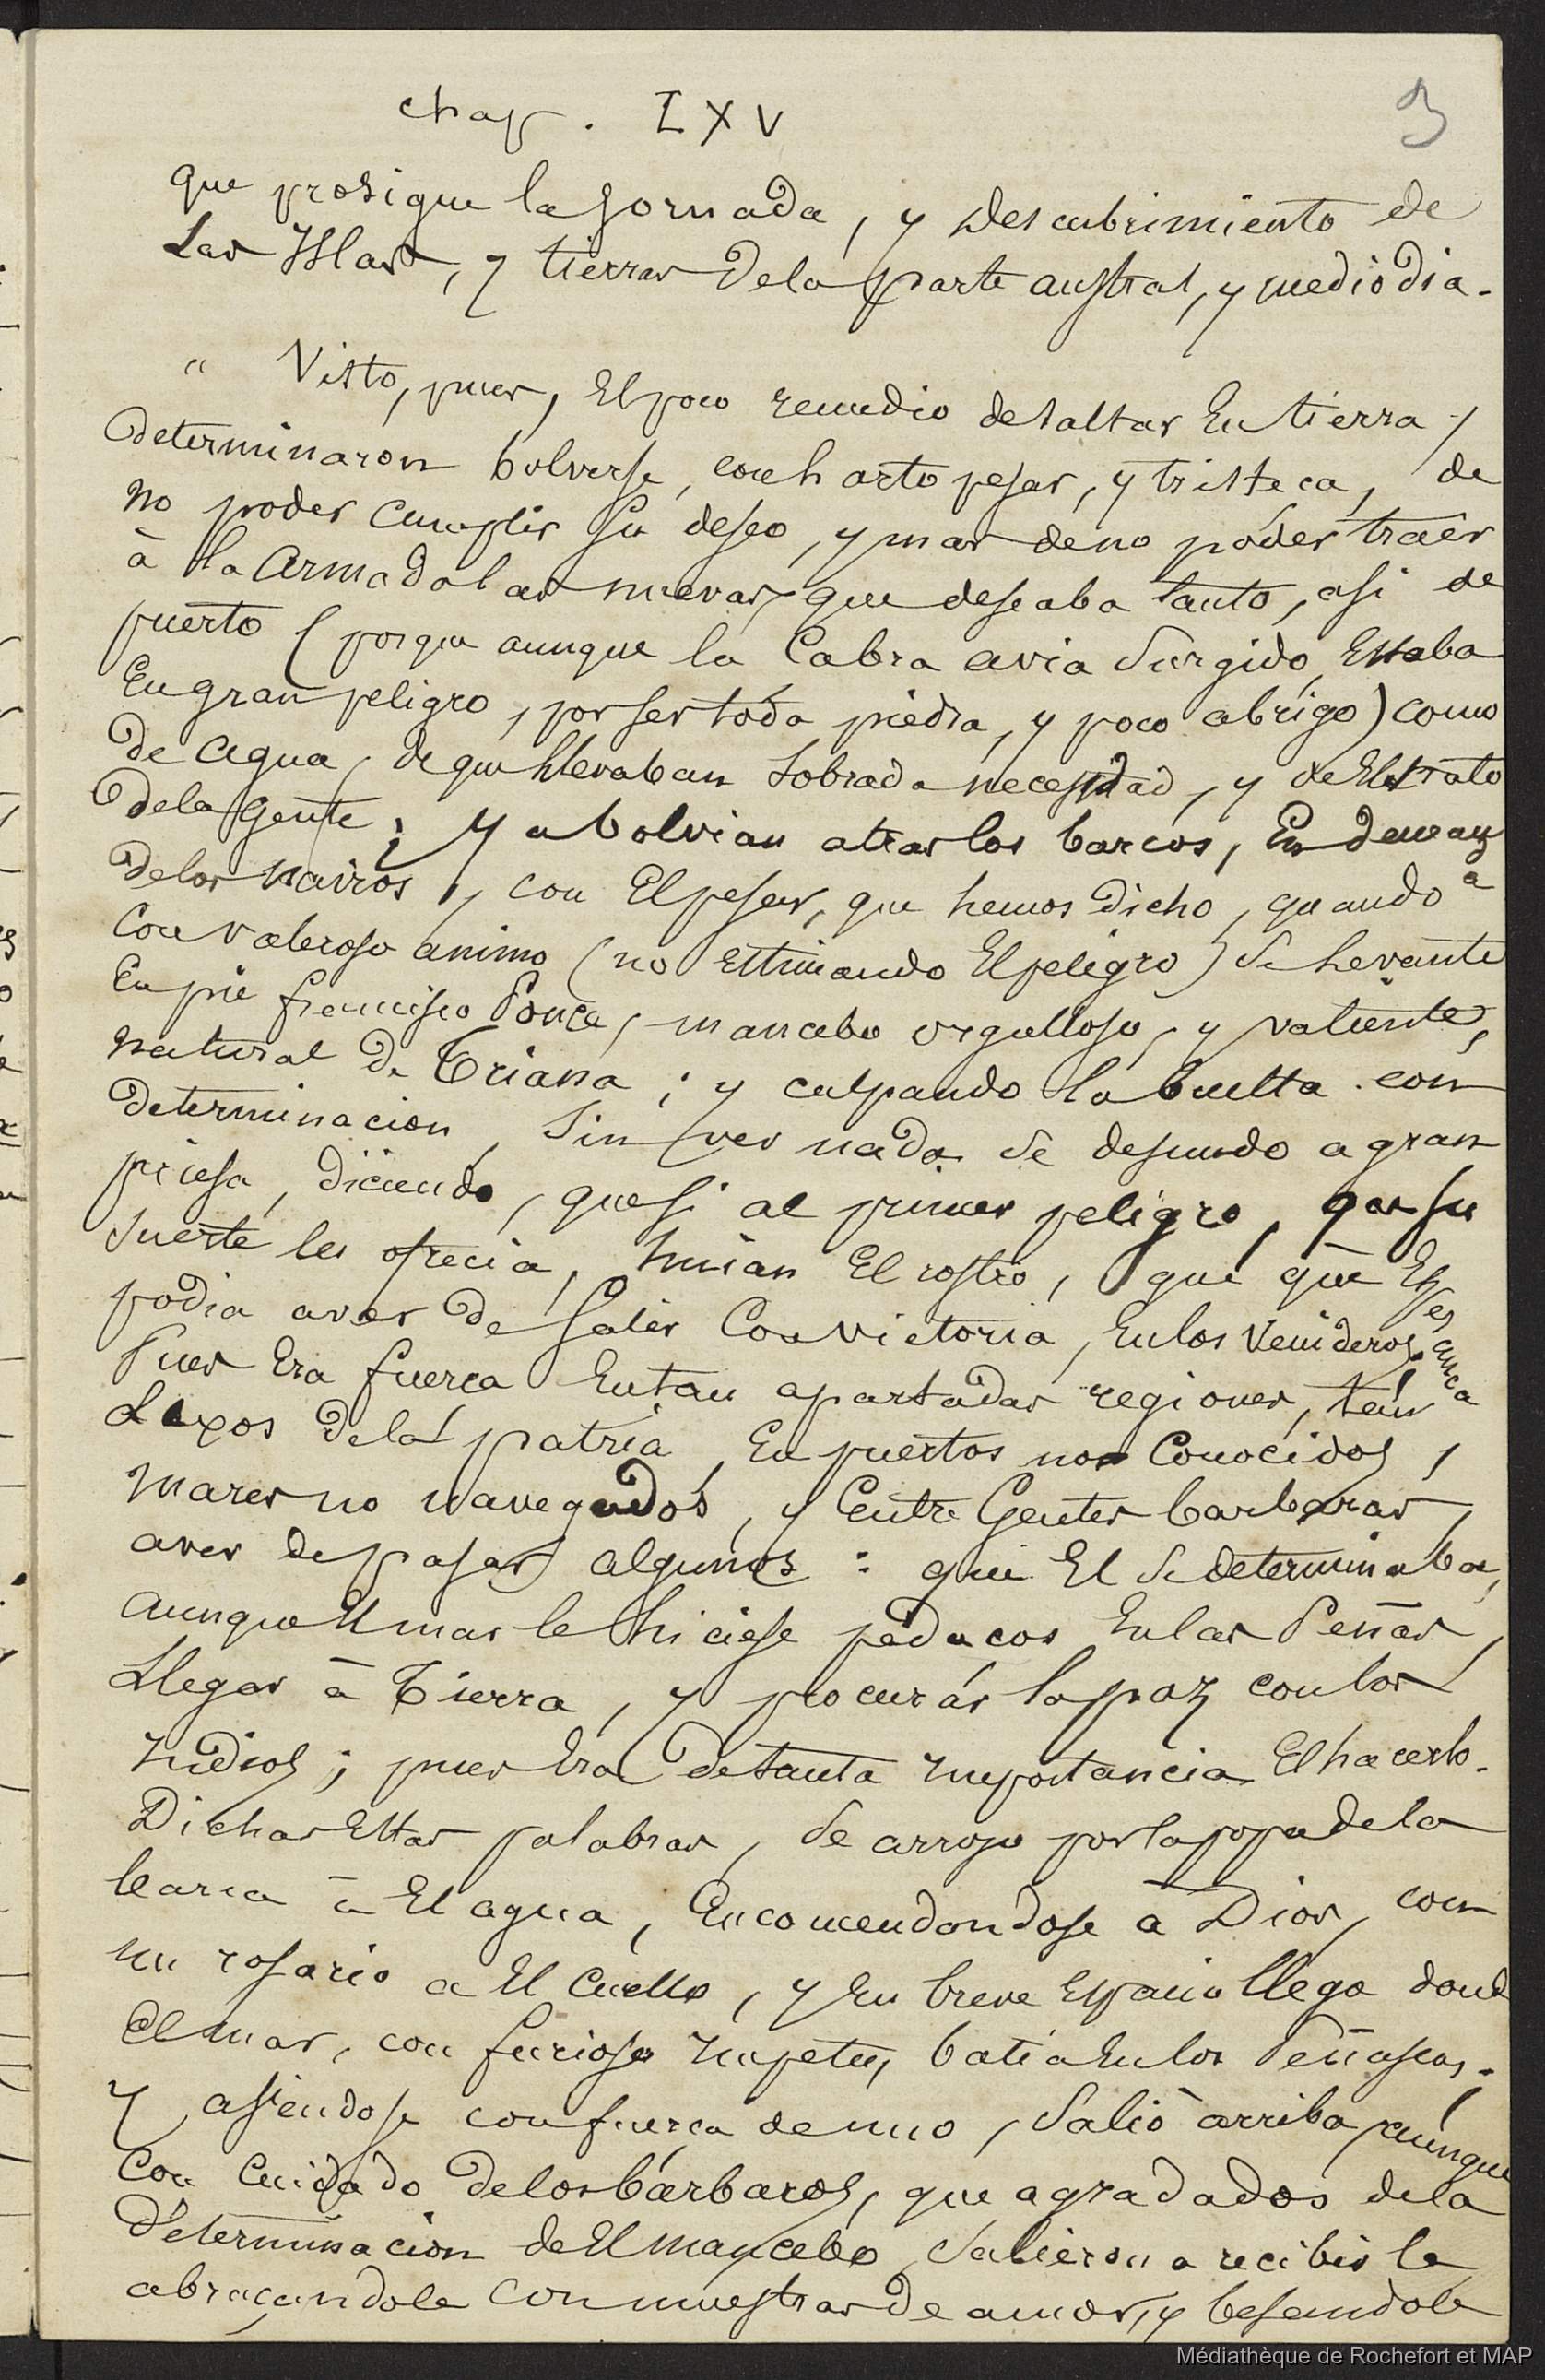 chap. LXV
3
que prosigue la Jornada, y descubrimiento de
Las Yslas, y tierras dela parte austral, y mediodia.
" Visto, pues, El poco remedio desaltar En tierra,
determinaron bolverse, con harto pesar, y tristeça, de
no poder cumplir su deseo, y mas deno poder traer
à la Armada las nuevas, que deseaba tanto, asi de
puerto (porque aunque la Cabra avia Surgido, Estaba
En gran peligro, por ser toda piedra, y poco abrigo) como
de Agua, de que llevaban sobrada necesidad, y de El trato
dela Gente; Ya bolvian atras los barcos, En demanda
delos navios, con El pesar, que hemos dicho, quando
Con valeroso animo (no Estimando El peligro) Se levanto
En pie francisco Ponce, mancebo orgulloso, y valiente,
natural de Triana; y culpando la buelta con
determinacion, Sin ver nada Se desnudo a gran
priesa, diciendo, que si al primer peligro, que su
Suerte les ofrecia, huian El rostro, que què Esperança
podia aver de Salir Con victoria, En los Venideros,
Pues Era fuerça En tan apartadas regiones, tan
Lexos dela patria, En puertos no Conocidos,
mares no navegados, y Entre Gentes barbaras,
aver de pasar algunos: que El Se determinaba,
aunque El mar le hiciese pedaços En las Peñas,
Llegar à Tierra, y procurar la paz con los
Yndios; pues Era de tanta Ymportancia El hacerlo.
Dichas Estas palabras, Se arrojo por la popa dela
barca à El agua, Encomendandose à Dios, con
un rosario a El Cuello, y En breve Espacio llego donde
El mar, con furioso Ympetu, batia En los Peñascos.
Y asiendose con fuerça de uno, Saliò arriba, aunque
Con Cuidado delos bárbaros, que agradados dela
Determinacion de El mancebo, Salieron a recibirle
abraçandole con muestras de amor, y besandole
Médiathèque de Rochefort et MAP